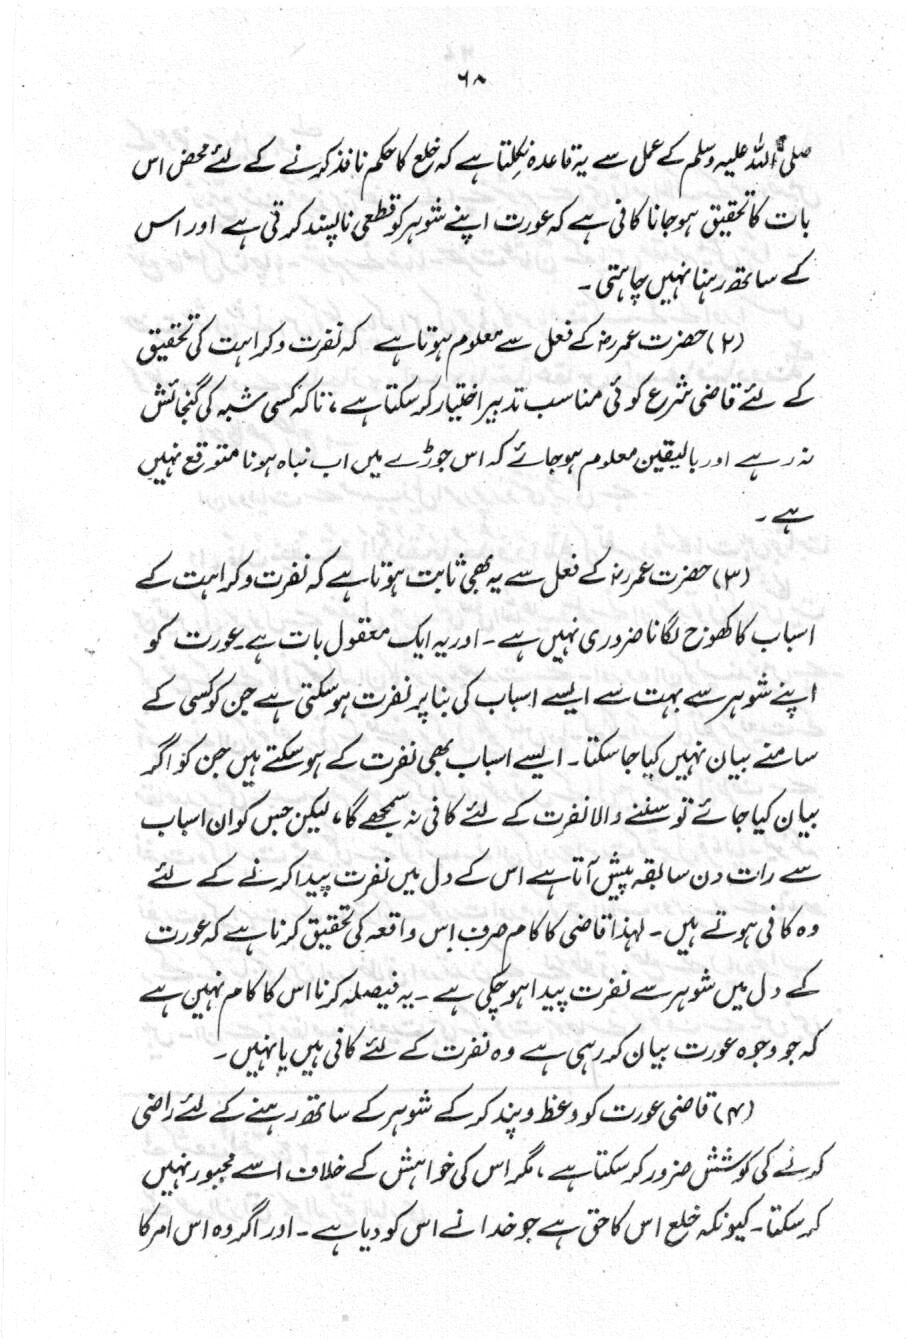 ۶۸
صلی اللہ علیہ وسلم کے عمل سے یہ قاعدہ نکلتا ہے کہ خلع کا حکم نافذ کرنے کے لئے محض اس
بات کا تحقیق ہو جانا کافی ہے کہ عورت اپنے شوہر کو قطعی ناپسند کرتی ہے اور اس
کے ساتھ رہنا نہیں چاہتی۔
(۲) حضرت عمرؓ کے فعل سے معلوم ہوتا ہے کہ نفرت و کراہت کی تحقیق
کے لئے قاضی شرع کوئی مناسب تدبیر اختیار کر سکتا ہے، تاکہ کسی شبہ کی گنجائش
نہ رہے اور بالیقین معلوم ہو جائے کہ اس جوڑے میں اب نباہ ہونا متوقع نہیں
ہے۔
(۳) حضرت عمرؓ کے فعل سے یہ بھی ثابت ہوتا ہے کہ نفرت و کراہت کے
اسباب کا کھوج لگانا ضروری نہیں ہے۔ اور یہ ایک معقول بات ہے۔ عورت کو
اپنے شوہر سے بہت سے ایسے اسباب کی بنا پر نفرت ہو سکتی ہے جن کو کسی کے
سامنے بیان نہیں کیا جا سکتا۔ ایسے اسباب بھی نفرت کے ہو سکتے ہیں جن کو اگر
بیان کیا جائے تو سننے والا نفرت کے لئے کافی نہ سمجھے گا، لیکن جس کو ان اسباب
سے رات دن سابقہ پیش آتا ہے اس کے دل میں نفرت پیدا کرنے کے لئے
وہ کافی ہوتے ہیں۔ لہذا قاضی کا کام صرف اس واقعہ کی تحقیق کرنا ہے کہ عورت
کے دل میں شوہر سے نفرت پیدا ہو چکی ہے۔ یہ فیصلہ کرنا اس کا کام نہیں ہے
کہ جو وجوہ عورت بیان کر رہی ہے وہ نفرت کے لئے کافی ہیں یا نہیں۔
(۴) قاضی عورت کو وعظ و پند کر کے شوہر کے ساتھ رہنے کے لئے راضی
کرنے کی کوشش ضرور کر سکتا ہے، مگر اس کی خواہش کے خلاف اسے مجبور نہیں
کر سکتا۔ کیونکہ خلع اس کا حق ہے جو خدا نے اس کو دیا ہے۔ اور اگر وہ اس امر کا